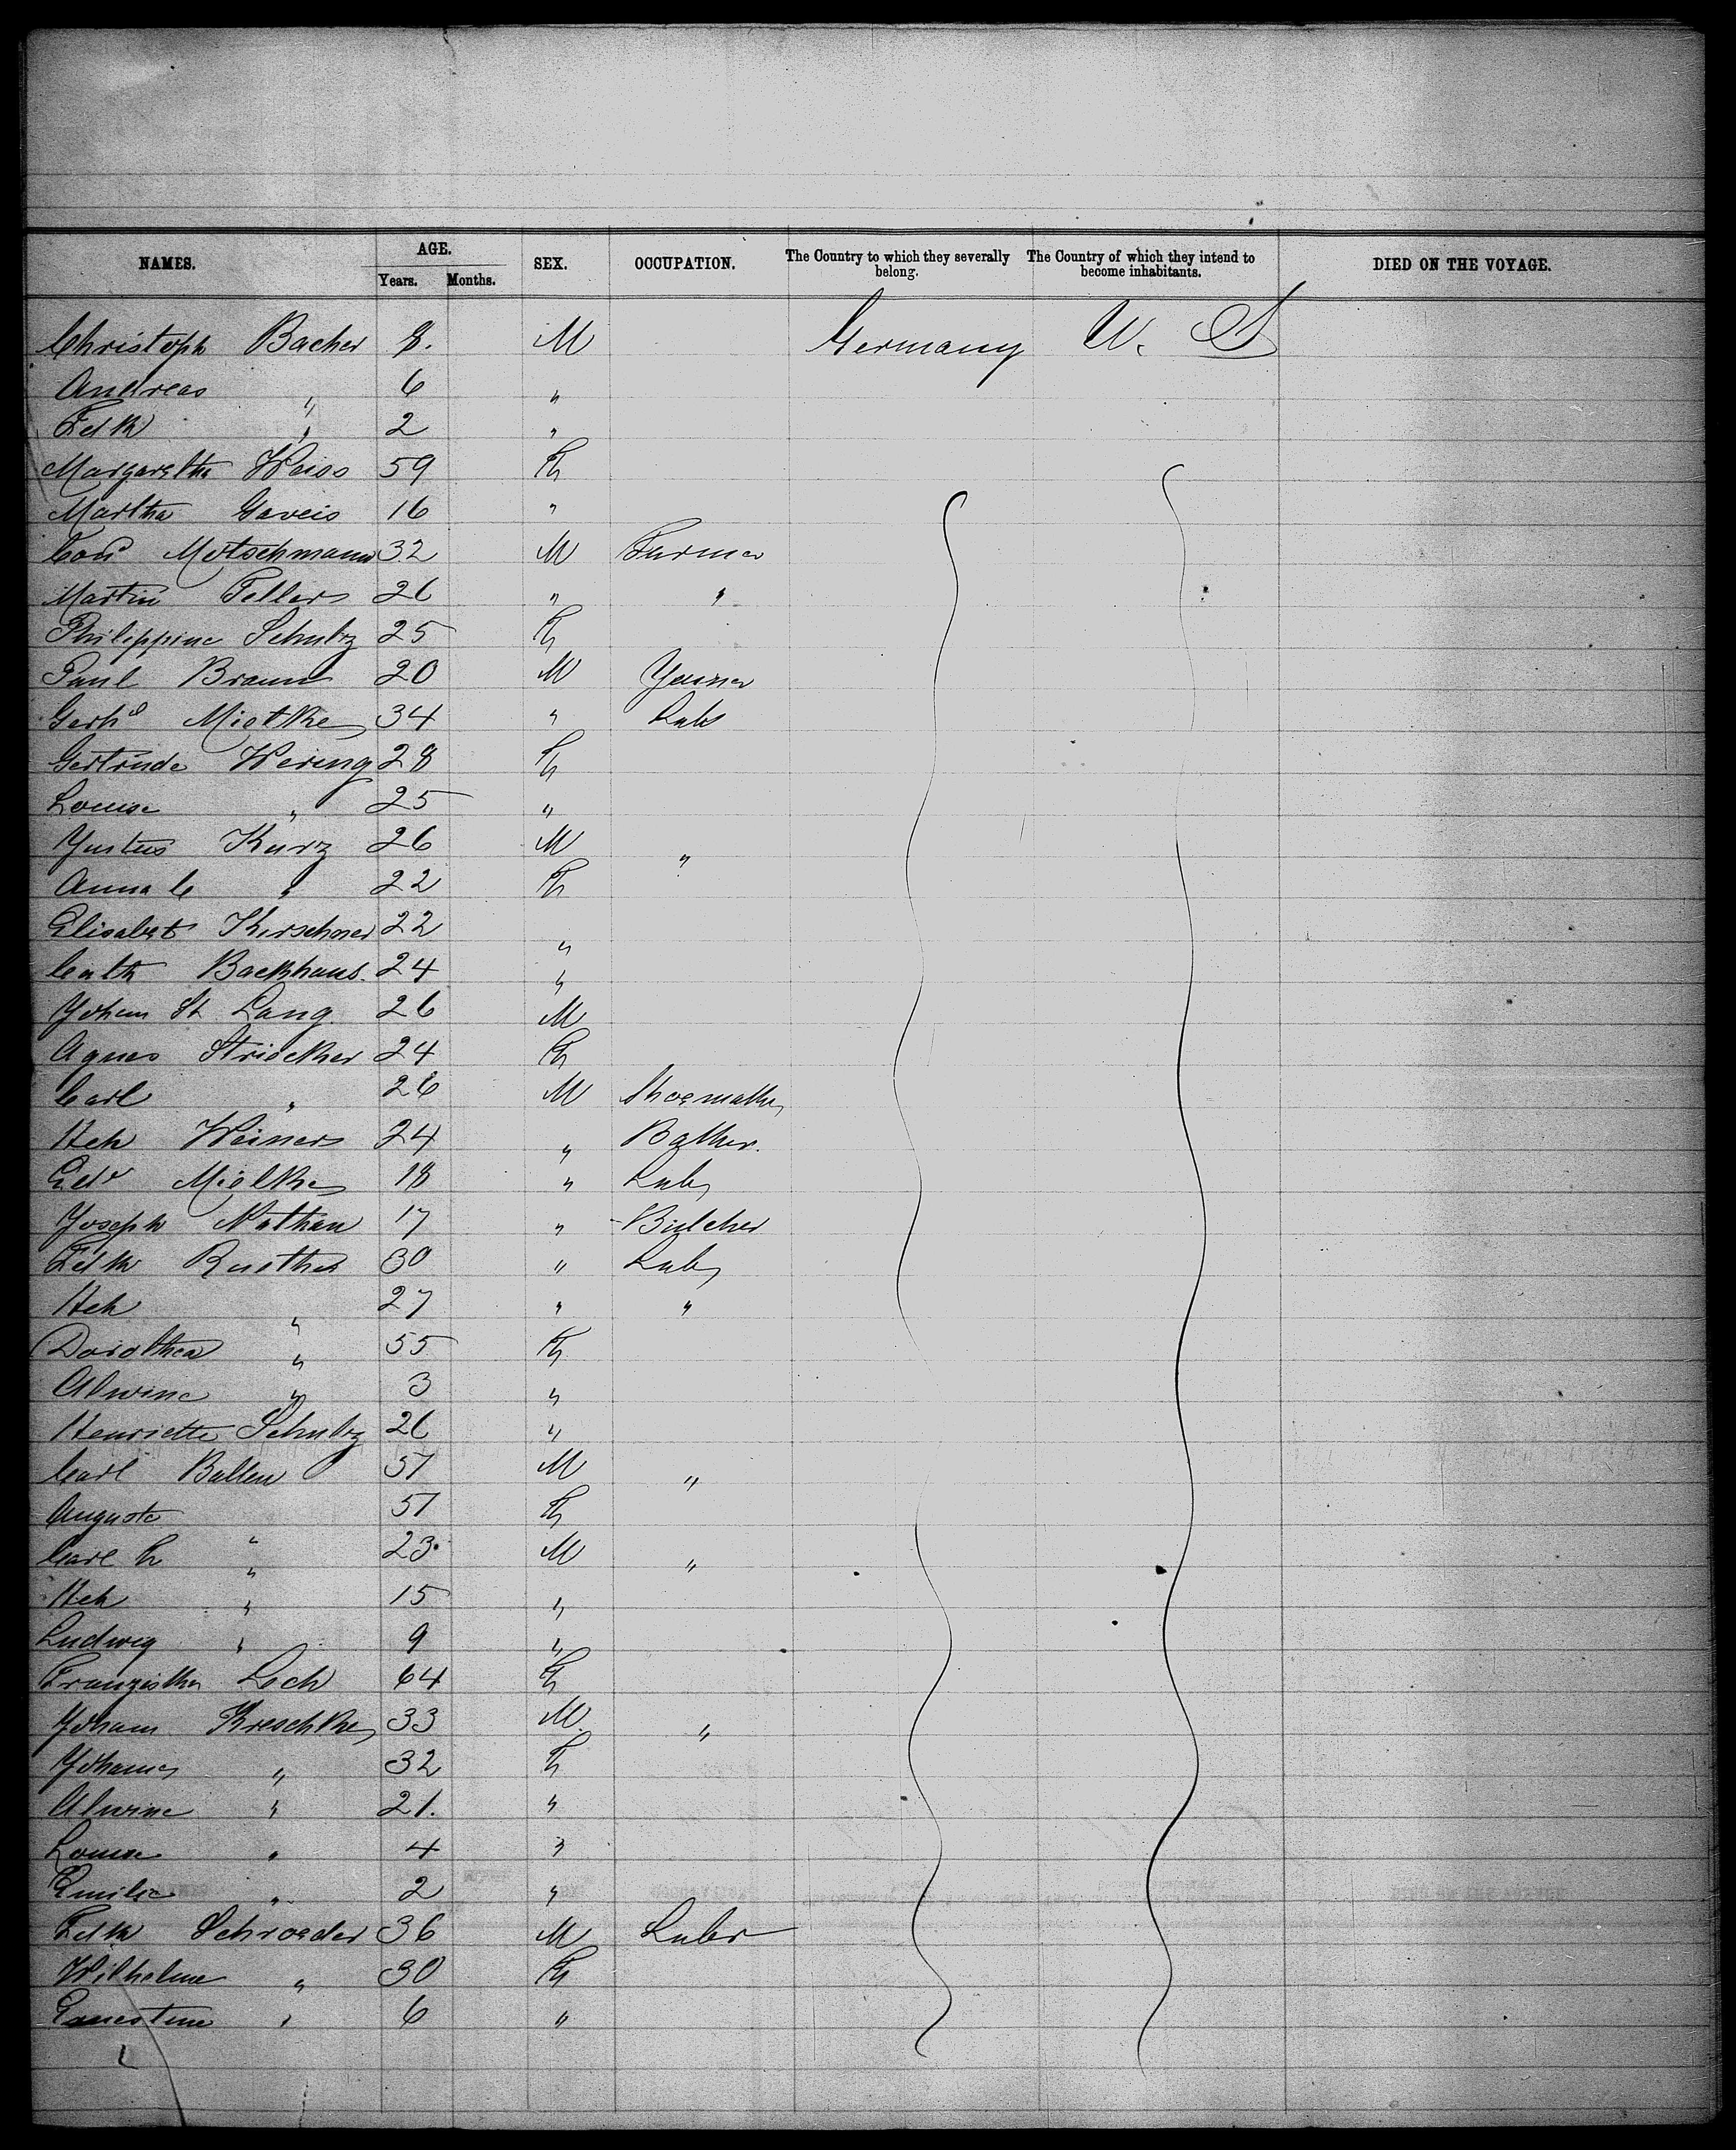 NAMES. AGE. SEX. OCCUPATION. The Country to which they severally belong. The Country of which they intend to become inhabitants. DIED ON THE VOYAGE.
Years. Months.
Christoph Bacher 8. M Germany U. S
Andreas " 6 "
Fdk " 2 "
Margaretha Weiss 59 F
Martha Gaveis 16 "
Cond Motschmann 32 M Farmer
Martin Fellers 26 " "
Philippine Schultz 25 F
Paul Braun 20 M
Gerhd Miotke 34 " Lab
Gertrude Wering 28 F
Louise " 25 "
Yustus Kurz 26 M "
Anna C " 22 F
Elisabet Kirschner 22 "
Cath Backhaus. 24 "
Joham St Lang. 26 M
Agnes Striecker 24 F
Carl " 26 M Shoemaker
Hch Weiners 24 " Baker.
Edv Mielke 18 " Lab
Joseph Nathan 17 " Butcher
Fdk Ruether 30 " Lab
Hch " 27 " "
Dorothea " 55 F
Alwine " 3 "
Henriette Schultz 26 "
Carl Ballen 51 M "
Auguste " 51 F
Carl h " 23. M "
Hch " 15 "
Ludwig " 9 "
Franziska Lech 64 F
Joham Kreschke 33 M. "
Johanna " 32 F
Alwine " 21. "
Louise " 4 "
Emilie " 2 "
Fdk Schroeder 36 M Labr
Wilhelme " 30 F
Ernestine " 6 "